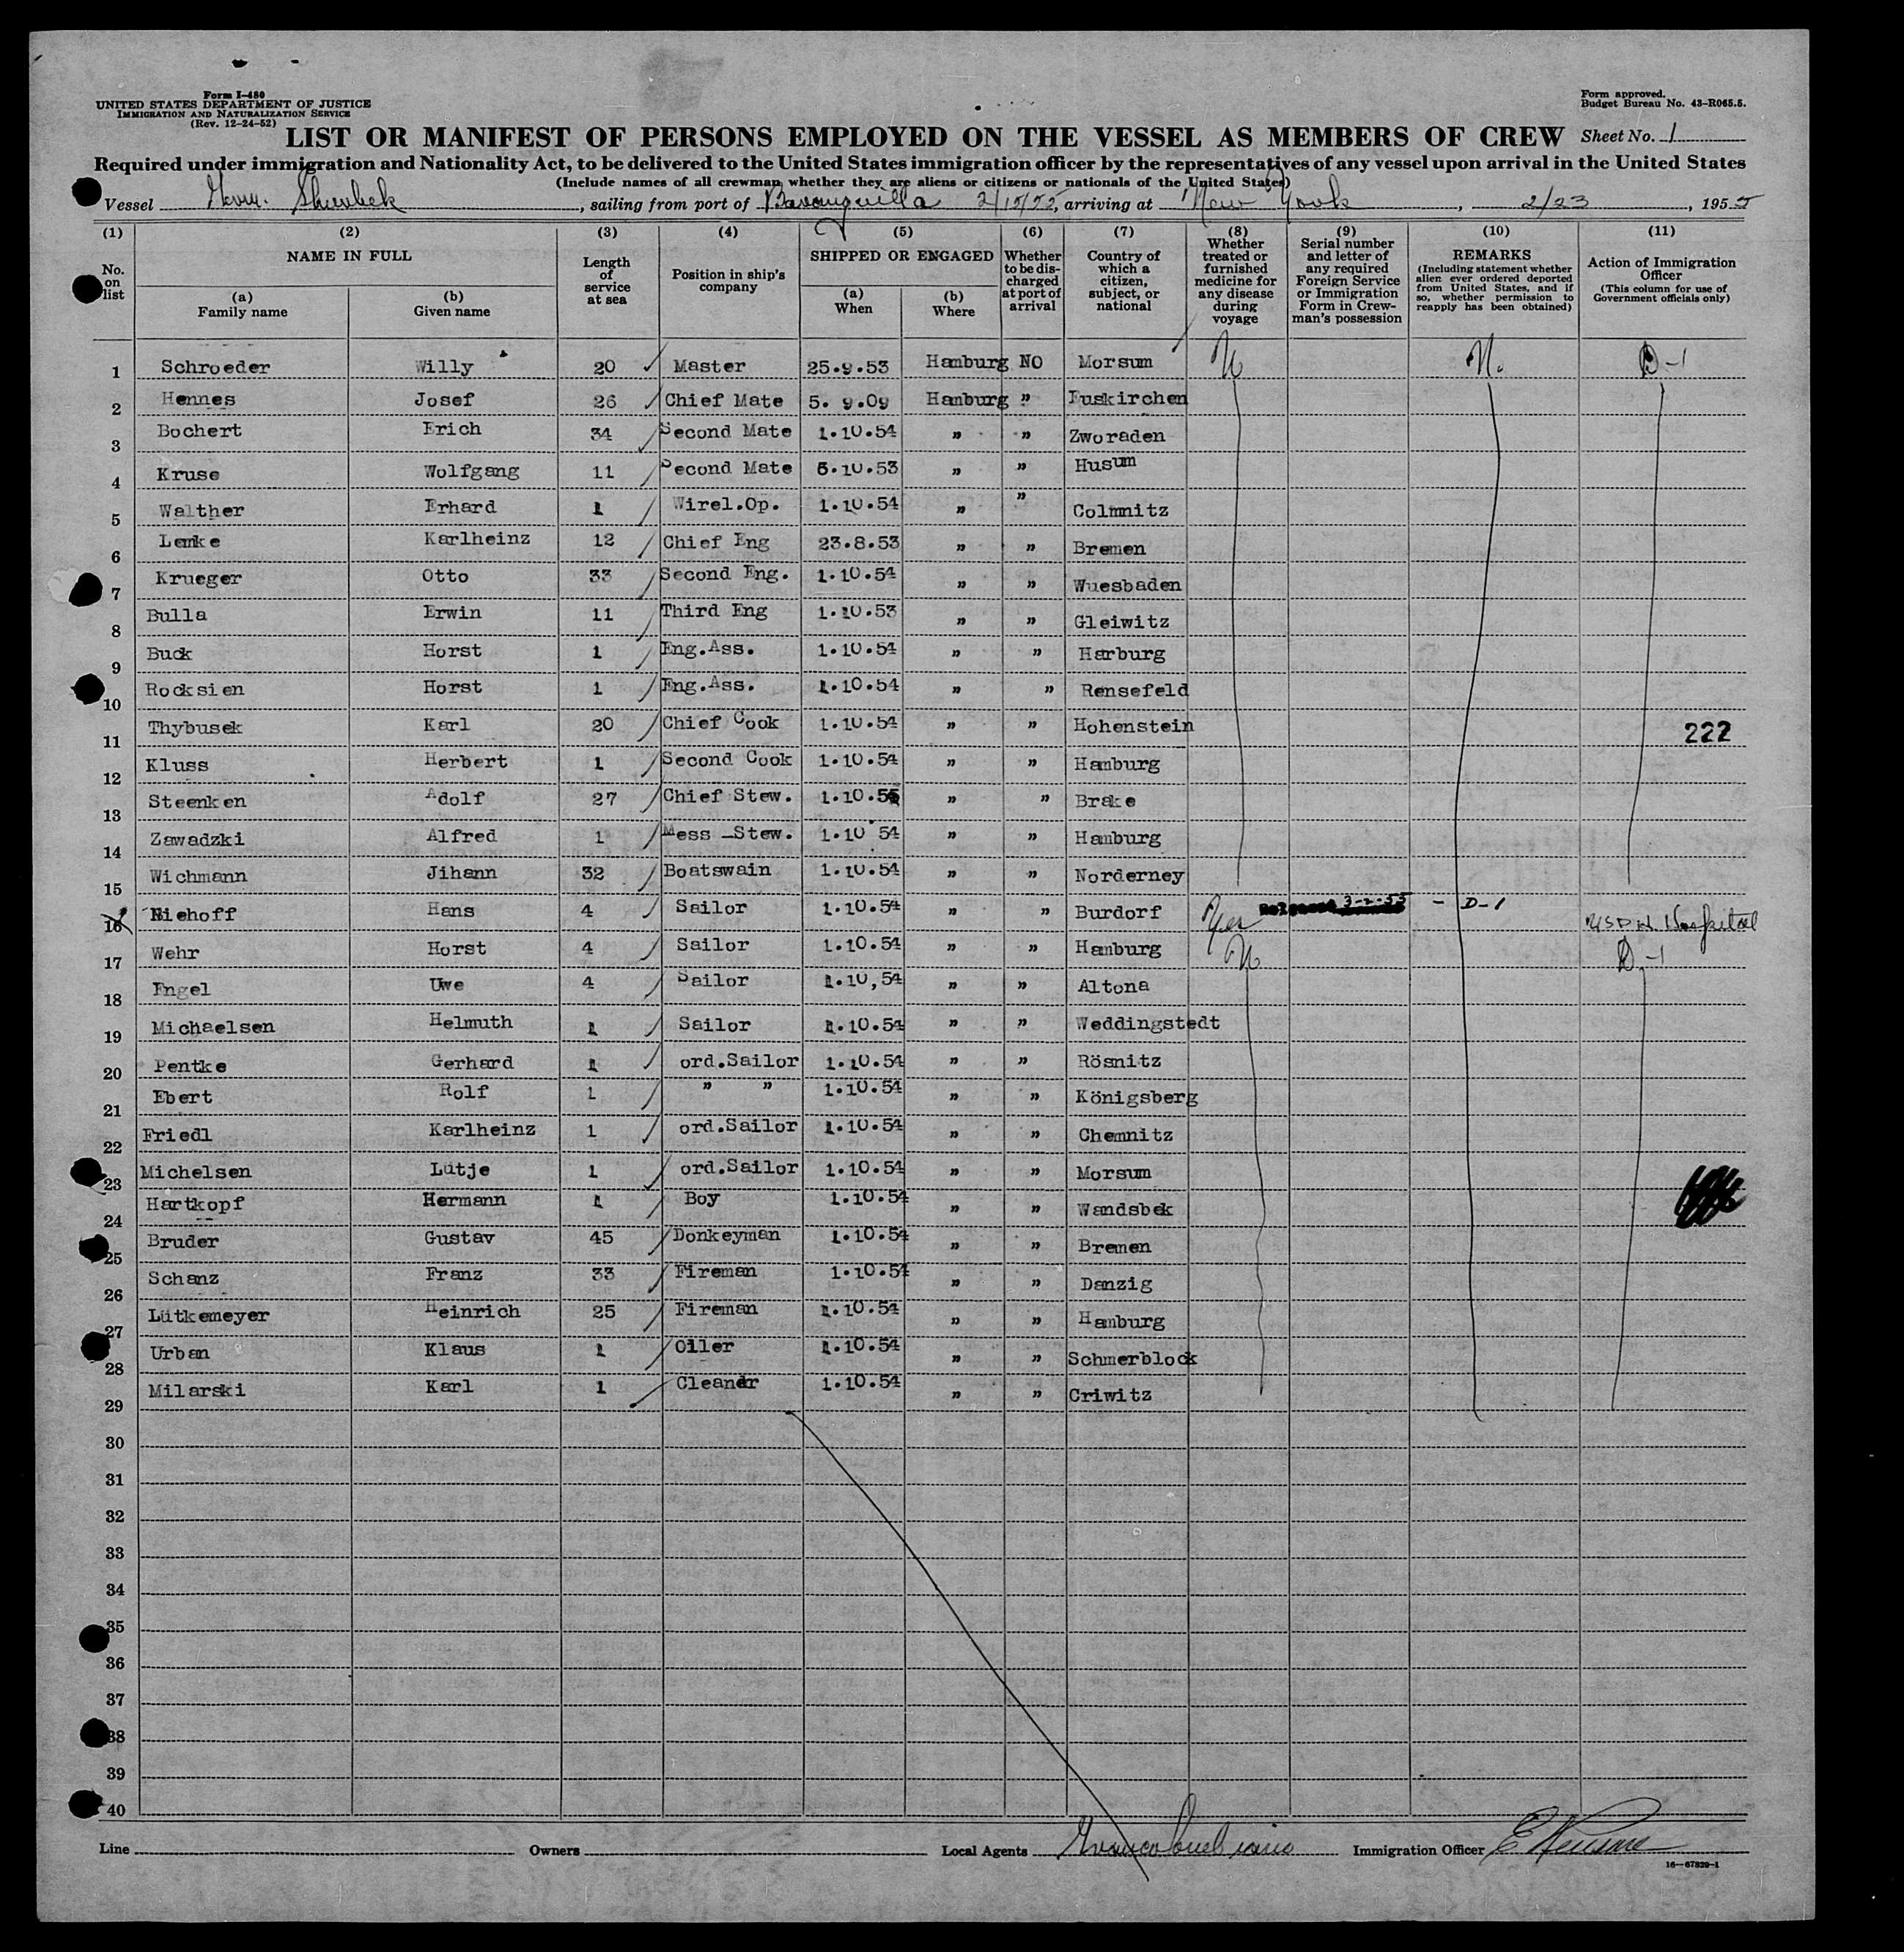 Form I-480
UNITED STATES DEPARTMENT OF JUSTICE
IMMIGRATION AND NATURALIZATION SERVICE
(Rev. 12-24-52)
Form approved.
Budget Bureau No. 43-R065.5.
LIST OR MANIFEST OF PERSONS EMPLOYED ON THE VESSEL AS MEMBERS OF CREW Sheet No. 1
Required under immigration and Nationality Act, to be delivered to the United States immigration officer by the representatives of any vessel upon arrival in the United States
(Include names of all crewman whether they are aliens or citizens or nationals of the United States)
Vessel, sailing from port of Barranquilla, arriving at New York, 2/23, 1955
(1) (2) (3) (4) (5) (6) (7) (8) (9) (10) (11)
No. on list
NAME IN FULL
(a) Family name
(b) Given name
Length of service at sea
Position in ship's company
SHIPPED OR ENGAGED
(a) When
(b) Where
Whether to be discharged at port of arrival
Country of which a citizen, subject, or national
Whether treated or furnished medicine for any disease during voyage
Serial number and letter of any required Foreign Service or Immigration Form in Crewman's possession
REMARKS
(Including statement whether alien ever ordered deported from United States, and if so, whether permission to reapply has been obtained)
Action of Immigration Officer
(This column for use of Government officials only)
1 Schroeder Willy 20 Master 25.9.53 Hamburg NO Morsum N N. D-1
2 Hennes Josef 26 Chief Mate 5. 9.09 Hamburg " Euskirchen
3 Bochert Erich 34 Second Mate 1.10.54 " " Zworaden
4 Kruse Wolfgang 11 Second Mate 5.10.53 " " Husum
5 Walther Erhard 1 Wirel.Op. 1.10.54 " " Colmnitz
6 Lemke Karlheinz 12 Chief Eng 23.8.53 " " Bremen
7 Krueger Otto 33 Second Eng. 1.10.54 " " Wuesbaden
8 Bulla Erwin 11 Third Eng 1.10.53 " " Gleiwitz
9 Buck Horst 1 Eng.Ass. 1.10.54 " " Harburg
10 Rocksien Horst 1 Eng.Ass. 1.10.54 " " Rensefeld
11 Thybusek Karl 20 Chief Cook 1.10.54 " " Hohenstein 222
12 Kluss Herbert 1 Second Cook 1.10.54 " " Hamburg
13 Steenken Adolf 27 Chief Stew. 1.10.54 " " Brake
14 Zawadzki Alfred 1 Mess -Stew. 1.10 54 " " Hamburg
15 Wichmann Jihann 32 Boatswain 1.10.54 " " Norderney
16 Niehoff Hans 4 Sailor 1.10.54 " " Burdorf Yes Released 3-2-55 - D-1 USPH. Hospital
17 Wehr Horst 4 Sailor 1.10.54 " " Hamburg N D-1
18 Engel Uwe 4 Sailor 1.10,54 " " Altona
19 Michaelsen Helmuth 1 Sailor 1.10.54 " " Weddingstedt
20 Pentke Gerhard 1 ord.Sailor 1.10.54 " " Rösnitz
21 Ebert Rolf 1 " " 1.10.54 " " Königsberg
22 Friedl Karlheinz 1 ord.Sailor 1.10.54 " " Chemnitz
23 Michelsen Lütje 1 ord.Sailor 1.10.54 " " Morsum
24 Hartkopf Hermann 1 Boy 1.10.54 " " Wandsbek
25 Bruder Gustav 45 Donkeyman 1.10.54 " " Bremen
26 Schanz Franz 33 Fireman 1.10.54 " " Danzig
27 Lütkemeyer Heinrich 25 Fireman 1.10.54 " " Hamburg
28 Urban Klaus 1 Oiler 1.10.54 " " Schmerblock
29 Milarski Karl 1 Cleaner 1.10.54 " " Criwitz
30
31
32
33
34
35
36
37
38
39
40
Line Owners Local Agents Immigration Officer
16-67829-1